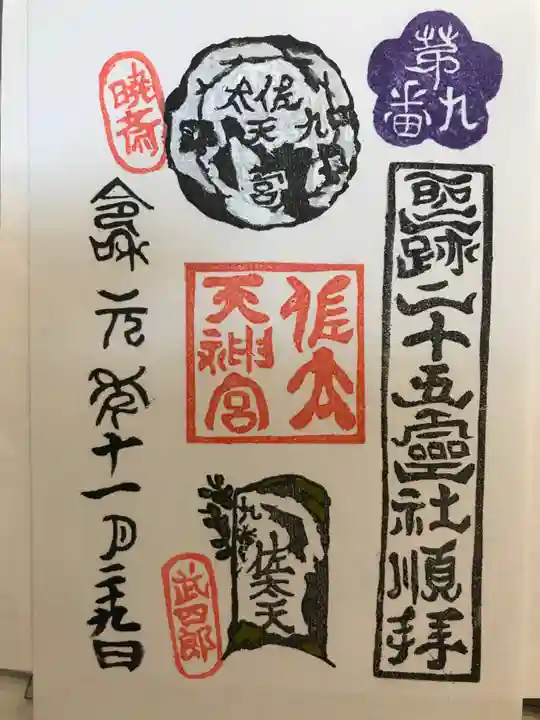 第九番
聖跡二十五霊社順拝
九
佐太
天宮
佐太
天神宮
九番
佐太天
暁斎
武四郎
令和元年十一月二十九日